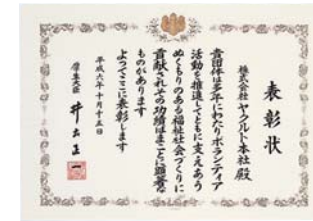 表彰状
株式会社ヤクルト本社 殿
貴団体は多年にわたりボランティア
活動を推進してともに支えあう
ぬくもりのある福祉社会づくりに
貢献されその功績はまことに顕著な
ものがあります
よってここに表彰します
平成六年十月十五日
厚生大臣 井出正一